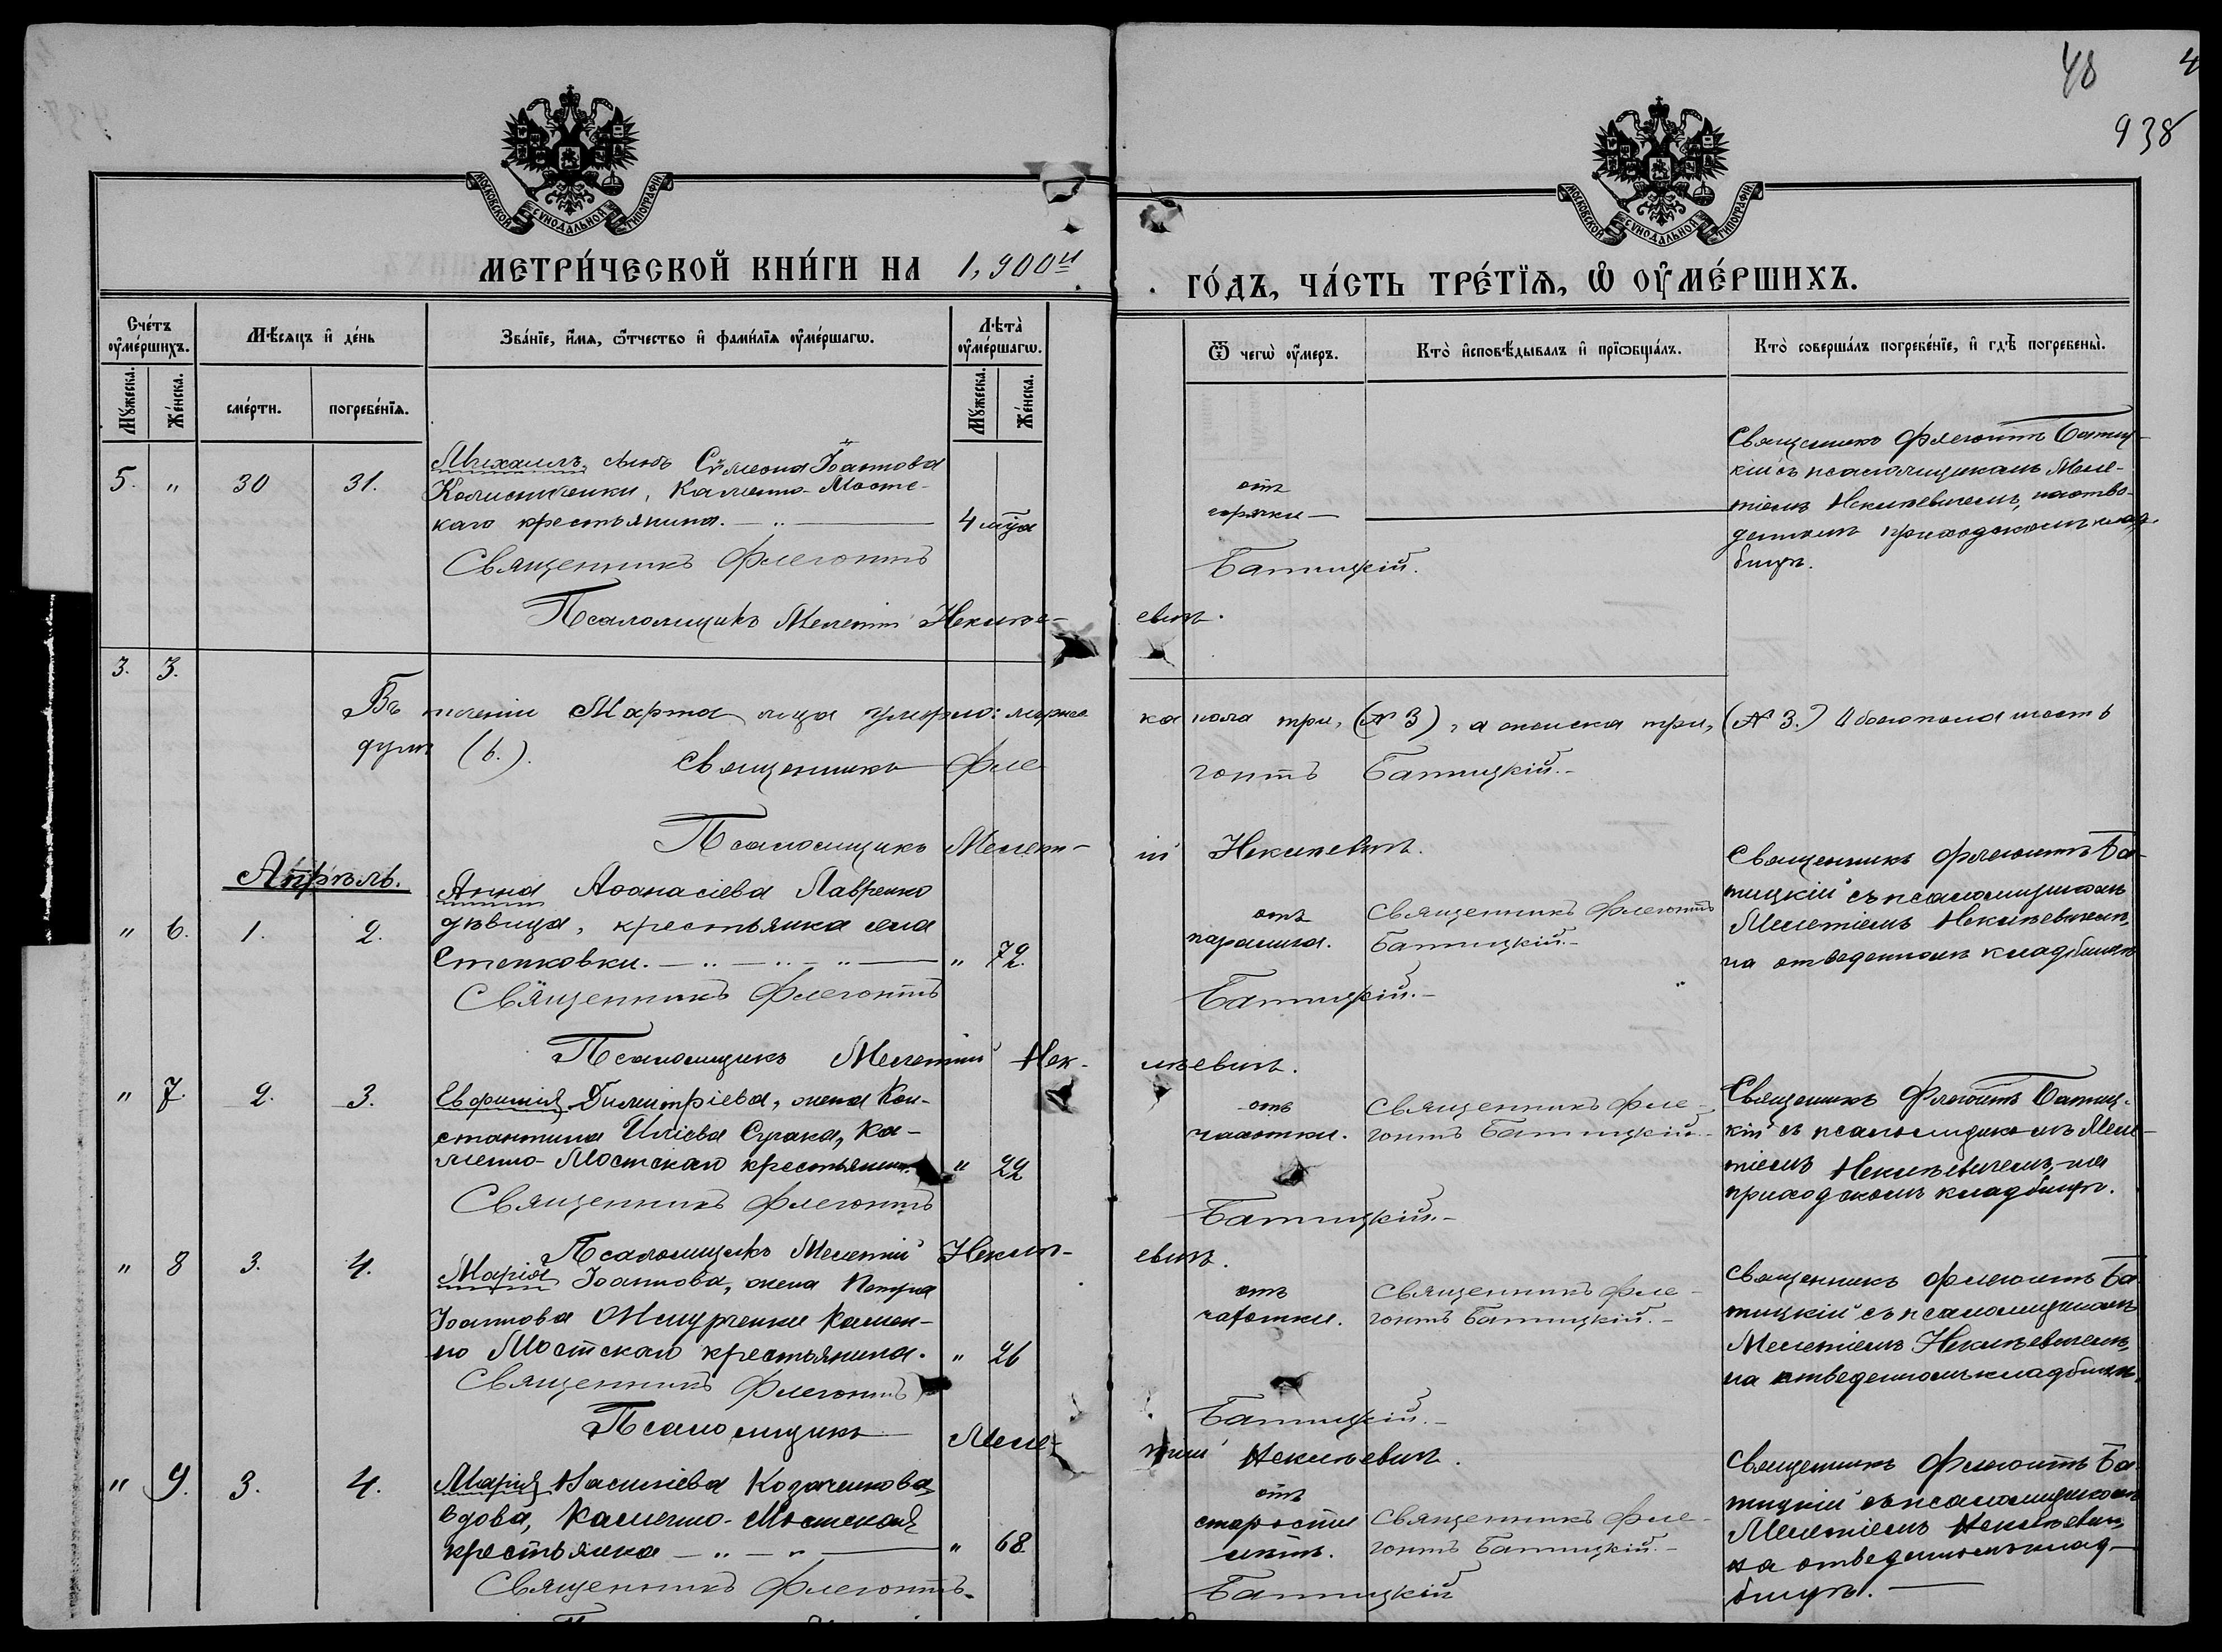 48
4
938
МОСКОВСКОЙ СѴНОДАЛЬНОЙ ТИПОГРАФІИ
МОСКОВСКОЙ СѴНОДАЛЬНОЙ ТИПОГРАФІИ
МЕТРИ́ЧЕСКОЙ КНИ́ГИ НА 1,900й
ГО́ДЪ, ЧА́СТЬ ТРЕ́ТЇѦ, Ѽ ОУ҆МЕ́РШИХЪ.
Сче́тъ оу҆ме́ршихъ.
Мѣ́сяцъ и҆ де́нь
Зва́нїе, и҆́мя, ѻ҆́тчество и҆ фами́лїя оу҆ме́ршагѡ.
Лѣ́та оу҆ме́ршагѡ.
Ѿ чегѡ̀ оу҆́меръ.
Кто̀ и҆сповѣ́дывалъ и҆ прїѡбща́лъ.
Кто̀ соверша́лъ погребе́нїе, и҆ гдѣ̀ погребены̀.
Мꙋ́жеска.
Же́нска.
сме́рти.
погребе́нїя.
Мꙋ́жеска.
Же́нска.
5. " 30 31.
Михаилъ, сынъ Сѵмеона Іоаннова
Каменно-Мостс-
каго крестьянина.
4 м̃ца
отъ
горячки
Священникъ Флегонтъ Батиц-
кій съ псаломщикомъ Меле-
тіемъ Некилевичемъ, на отве-
денномъ приходскомъ клад-
бищѣ.
Священникъ Флегонтъ Батицкій.
Псаломщикъ Мелетій Некиле-
евичъ.
3. 3.
Въ теченіи Марта м̃ца умерло: мужес
ка пола три, (№ 3), а женска три, (№ 3.) Обоего пола шесть
душъ (6.).
Священникъ Фле
гонтъ Батицкій.
Псаломщикъ Мелет-
ій Некилевичъ.
Апрѣль.
" 6. 1. 2.
Анна Аѳанасіева Лавренко
дѣвица, крестьянка села
Степковки. " 72.
отъ
паралича.
Священникъ Флегонтъ
Батицкій.
Священникъ Флегонтъ Ба-
тицкій съ псаломщикомъ
Мелетіемъ Некилевичемъ,
на отведенномъ кладбищѣ
Священникъ Флегонтъ Батицкій.
Псаломщикъ Мелетій Нек-
илевичъ.
" 7. 2. 3.
Евфимія Димитріева, жена Кон-
стантина Иліева Сулака, Ка-
менно-Мостскаго крестьянина " 22
отъ
чахотки.
Священникъ Фле-
гонтъ Батицкій.
Священникъ Флегонтъ Батиц-
кій съ псаломщикомъ Меле-
тіемъ Некилевичемъ, на
приходскомъ кладбищѣ.
Священникъ Флегонтъ Батицкій.
Псаломщикъ Мелетій Некил-
евичъ.
" 8 3. 4.
Марія Іоаннова, жена Петра
Іоаннова Камен-
но Мостскаго крестьянина. " 26
отъ
чахотки.
Священникъ Фле-
гонтъ Батицкій.
Священникъ Флегонтъ Ба
тицкій съ псаломщикомъ
Мелетіемъ Некилевичемъ,
на отведенномъ кладбищѣ.
Священникъ Флегонтъ Батицкій.
Псаломщикъ Меле-
тій Некилевичъ.
" 9. 3. 4.
Марія Василіева Козаченкова
вдова, Каменно-Мостская
крестьянка " 68
отъ
старости
лѣтъ.
Священникъ Фле-
гонтъ Батицкій.
Священникъ Флегонтъ Ба
тицкій съ псаломщикомъ
Мелетіемъ Некилевич.,
на отведенномъ клад-
бищѣ.
Священникъ Флегонтъ Батицкій